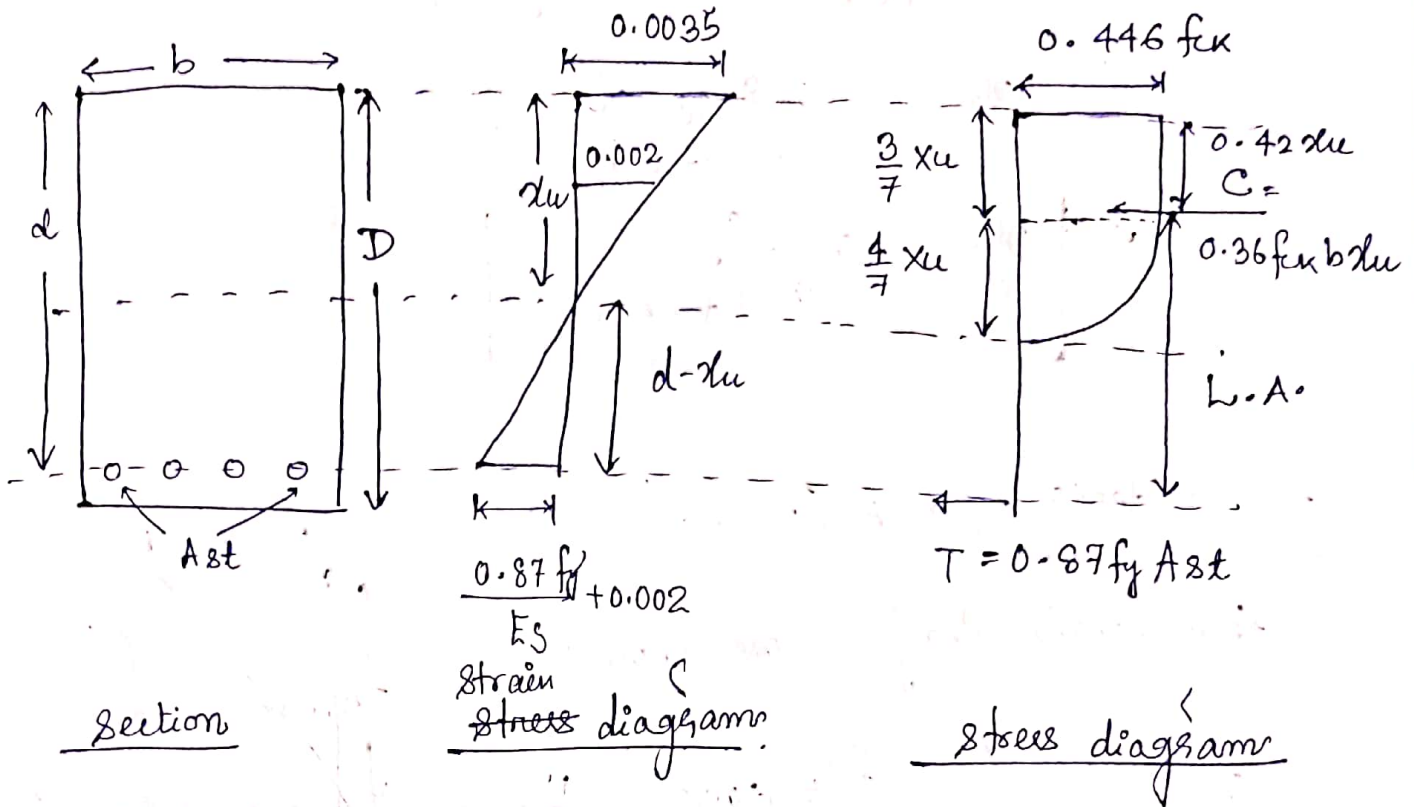 b
d
D
Ast
Section
0.0035
0.002
xu
d-xu
0.87 fy
+0.002
Es
Strain
stress diagram
0.446 fck
3/7 xu
4/7 xu
0.42 xu
C =
0.36 fck b xu
L.A.
T = 0.87 fy Ast
stress diagram